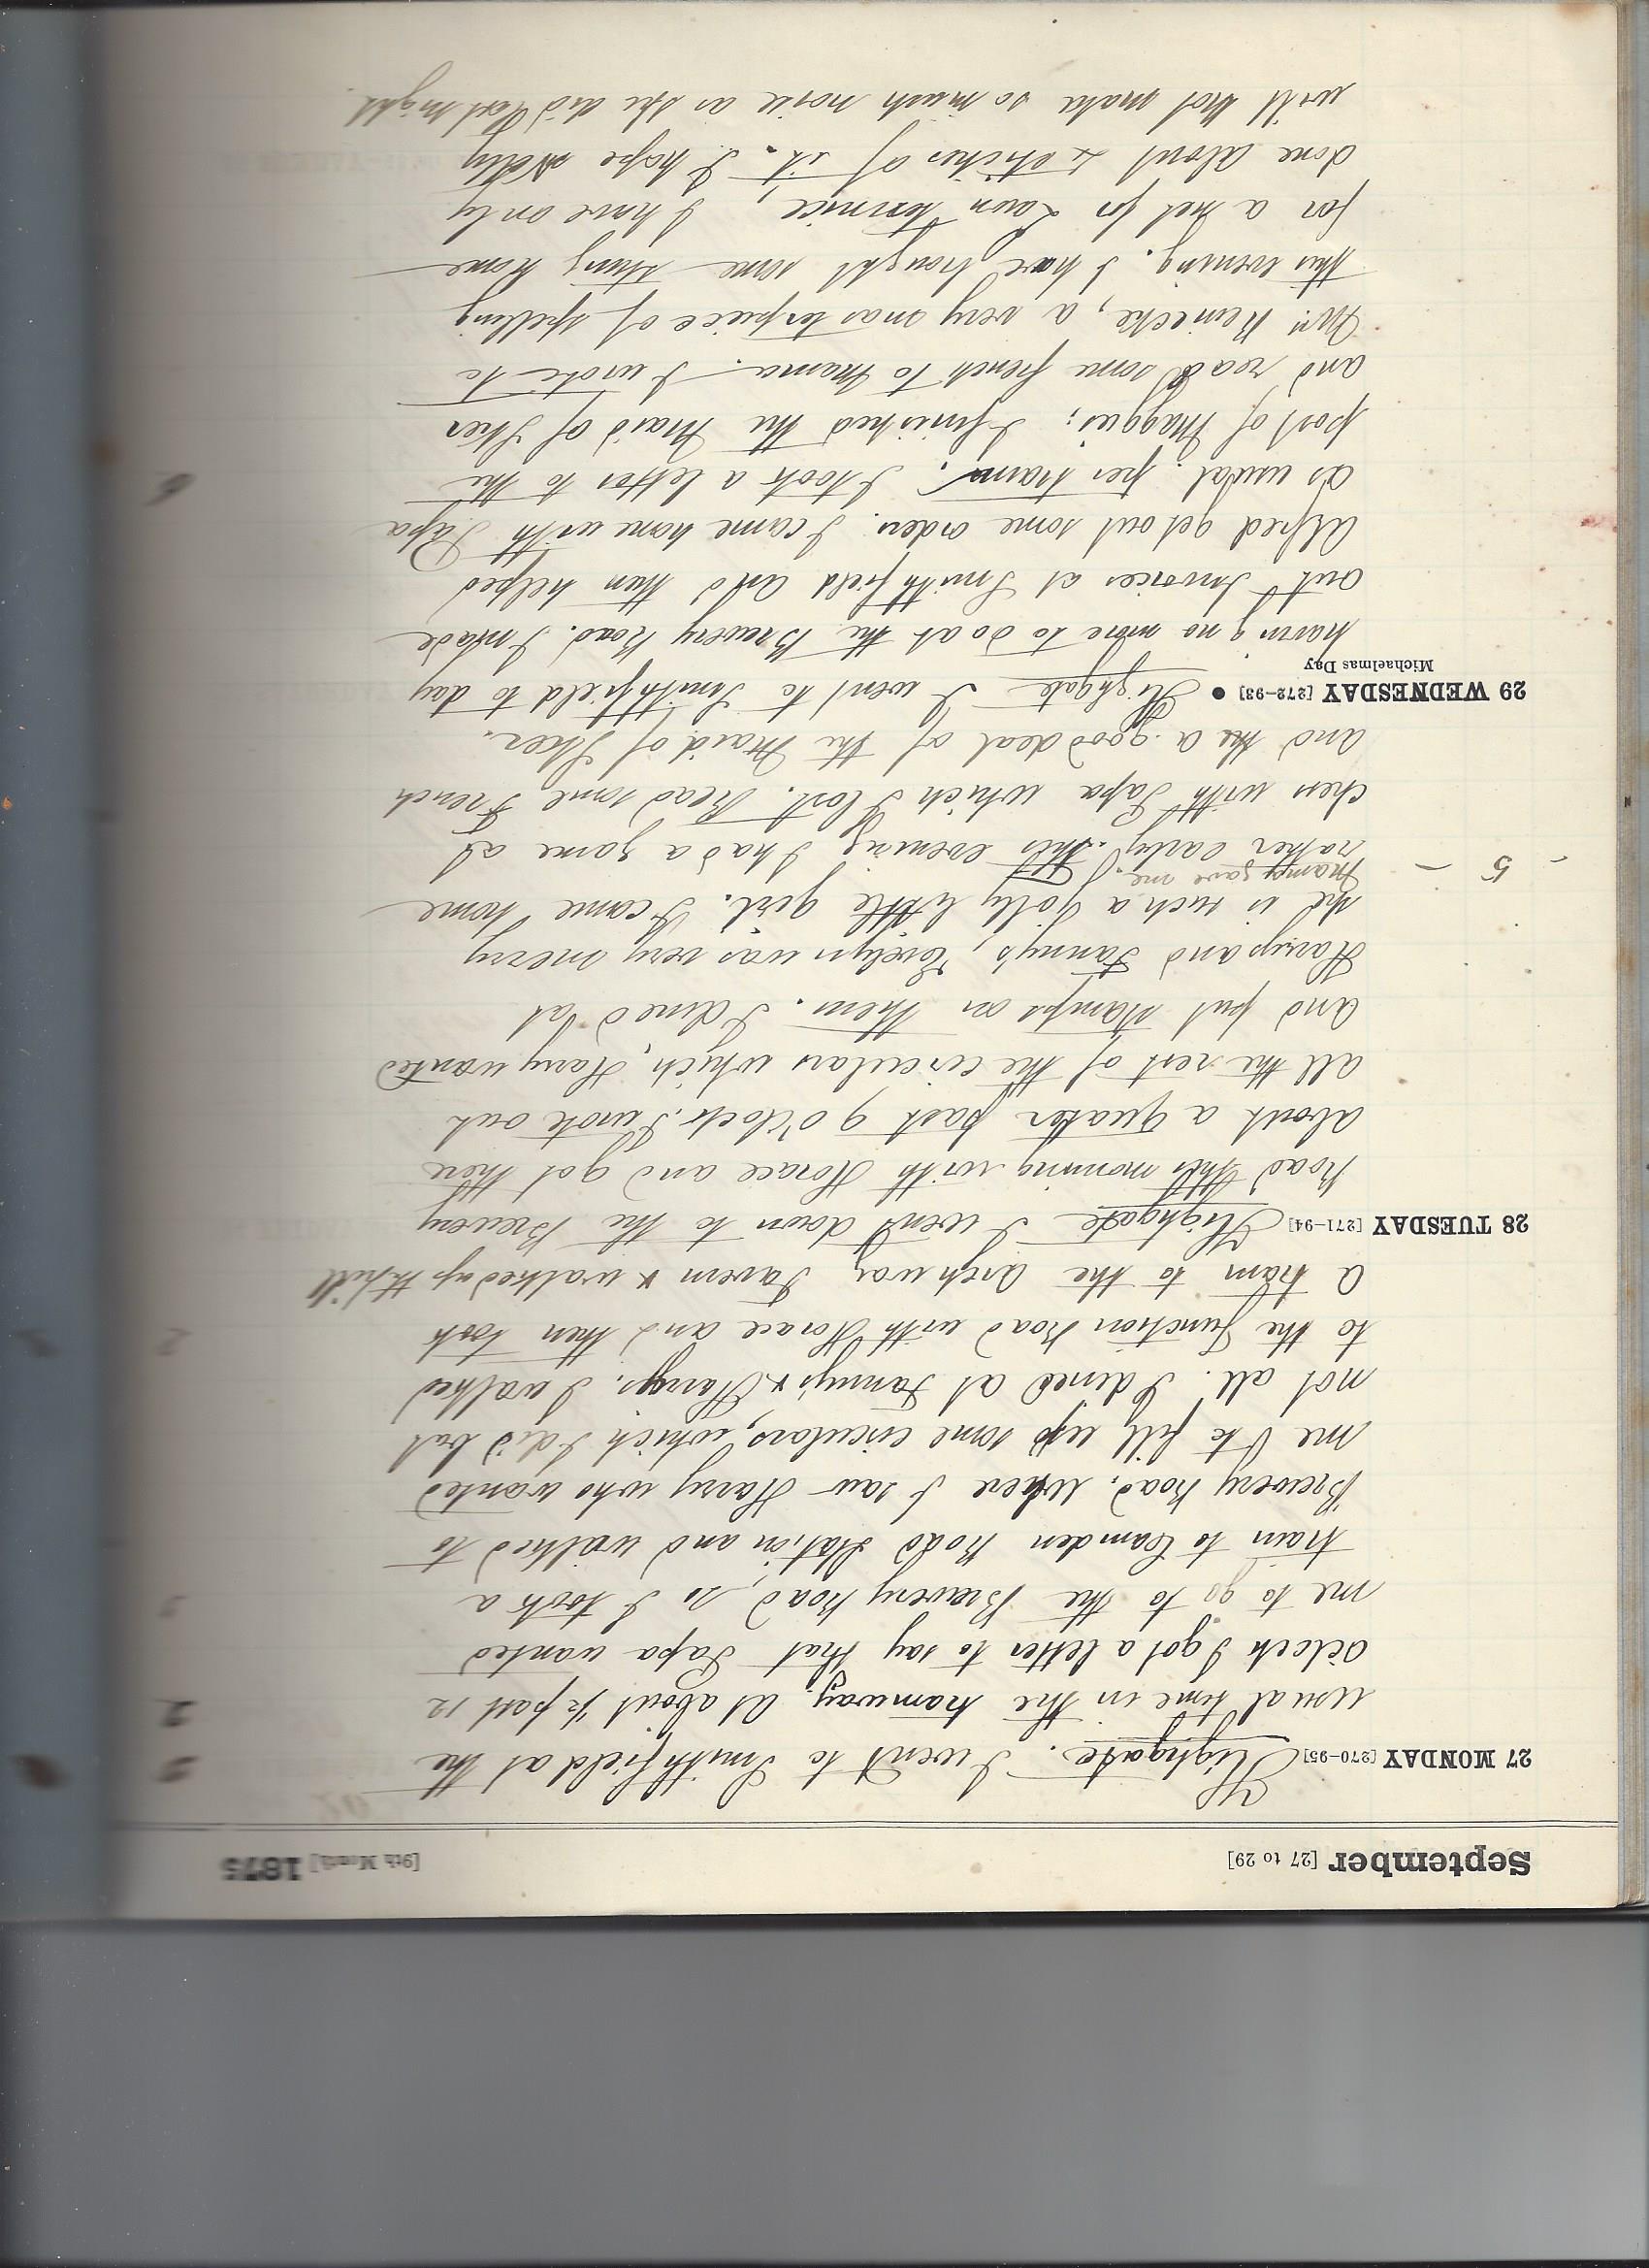 September [27 to 29] [9th Month] 1875
27 MONDAY [270-95] Highgate. I went to Smithfield at the
usual time in the tramway. At about ½ past 12 2
oclock I got a letter to say that Papa wanted
me to go to the Brewery Road, so I took a
train to Camden Road Station and walked to
Brewery Road. Where I saw Harry who wanted
me to fill up some circulars, which I did but
not all. I dined at Fanny's & Harry's. I walked
to the Junction Road with Horace and then took 2
a tram to the Archway Tavern & walked up the hill
28 TUESDAY [271-94] Highgate I went down to the Brewery
Road this morning with Horace and got there
about a quater past 9 o'clock. I wrote out
all the rest of the circulars which Harry wanted
and put stamps on them. I dined at
Harry and Fanny's, Evelyn was very merry
she is such a jolly little girl. I came home
- 5 - Mamy gave me
rather early. This evening I had a game at
chess with Papa which I lost. Read some French
and the a good deal of the Maid of Sker.
29 WEDNESDAY [272-93] ● Highgate I went to Smithfield to day
Michaelmas Day
having no more to do at the Brewery Road. I made
out Invoices at Smithfield and then helped
Alfred get out some orders. I came home with Papa
as usual per tram. I took a letter to the 6
post of Maggies; I finished the Maid of Sker
and read some french to Mama. I wrote to
Mr. Reinecke, a very masterpiece of spelling
this evening. I have brought some string home
for a net for Lawn tennice, I have only
done about stiches of it. I hope Nelly
will not make so much noise as she did last night.